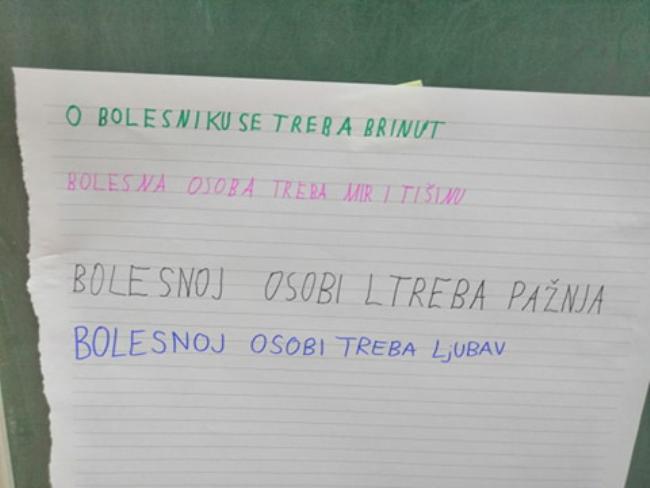 O BOLESNIKU SE TREBA BRINUT
BOLESNA OSOBA TREBA MIR I TIŠINU
BOLESNOJ OSOBI LTREBA PAŽNJA
BOLESNOJ OSOBI TREBA LjUBAV